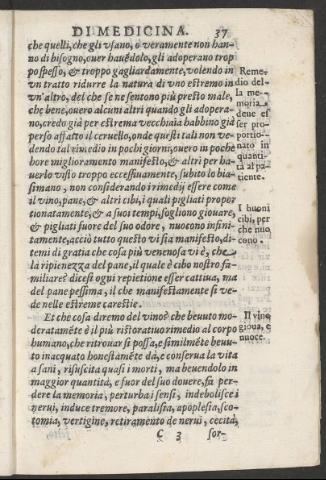 DI MEDICINA. 37
che quelli, che gli vsano, o veramente non han-
no di bisogno, ouer hauẽdolo, gli adoperano trop
po spesso, & troppo gagliardamente, volendo in
vn tratto ridurre la natura di vno estremo in
vn'altro, del che se ne sentono più presto male,
che bene, ouero alcuni altri quando gli adopera-
no, credo già per estrema vecchiaia habbino già
perso affatto il ceruello, onde questi tali non ve-
dendo tal rimedio in pochi giorni, ouero in poche
hore miglioramento manifesto, & altri per ha-
uerlo visto troppo eccessiuamente, subito lo bia-
simano, non considerando i rimedij essere come
il vino, pane, & altri cibi, i quali pigliati propor
tionatamente, & a suoi tempi, sogliono giouare,
& pigliati fuore del suo odore, nuocono infini-
tamente, acciò tutto questo vi sia manifesto, di-
temi di gratia che cosa più venenosa vi è, che
la ripienezza del pane, il quale è cibo nostro fa-
miliare? dicesi ogni repietione esser cattiua, ma
del pane pessima, il che manifestamente si ve-
de nelle estreme carestie.
Et che cosa diremo del vino? che beuuto mo-
deratamẽte è il più ristoratiuo rimedio al corpo
humano, che ritrouar si possa, e similmẽte beuu-
to inacquato honestamẽte dà, e conserua la vita
a sani, risuscita quasi i morti, ma beuendolo in
maggior quantità, e fuor del suo douere, fa per-
dere la memoria, perturba i sensi, indebolisce i
nerui, induce tremore, paralisia, apoplesia, sco-
tomia, vertigine, retiramento de nerui, cecità,
C 3 sor-
Reme-
dio del-
la me-
moria
deue es
ser pro
portio-
nato in
quanti-
tà al pa
tiente.
I buoni
cibi, per
che nuo
cono.
Il vino
gioua, e
nuoce.